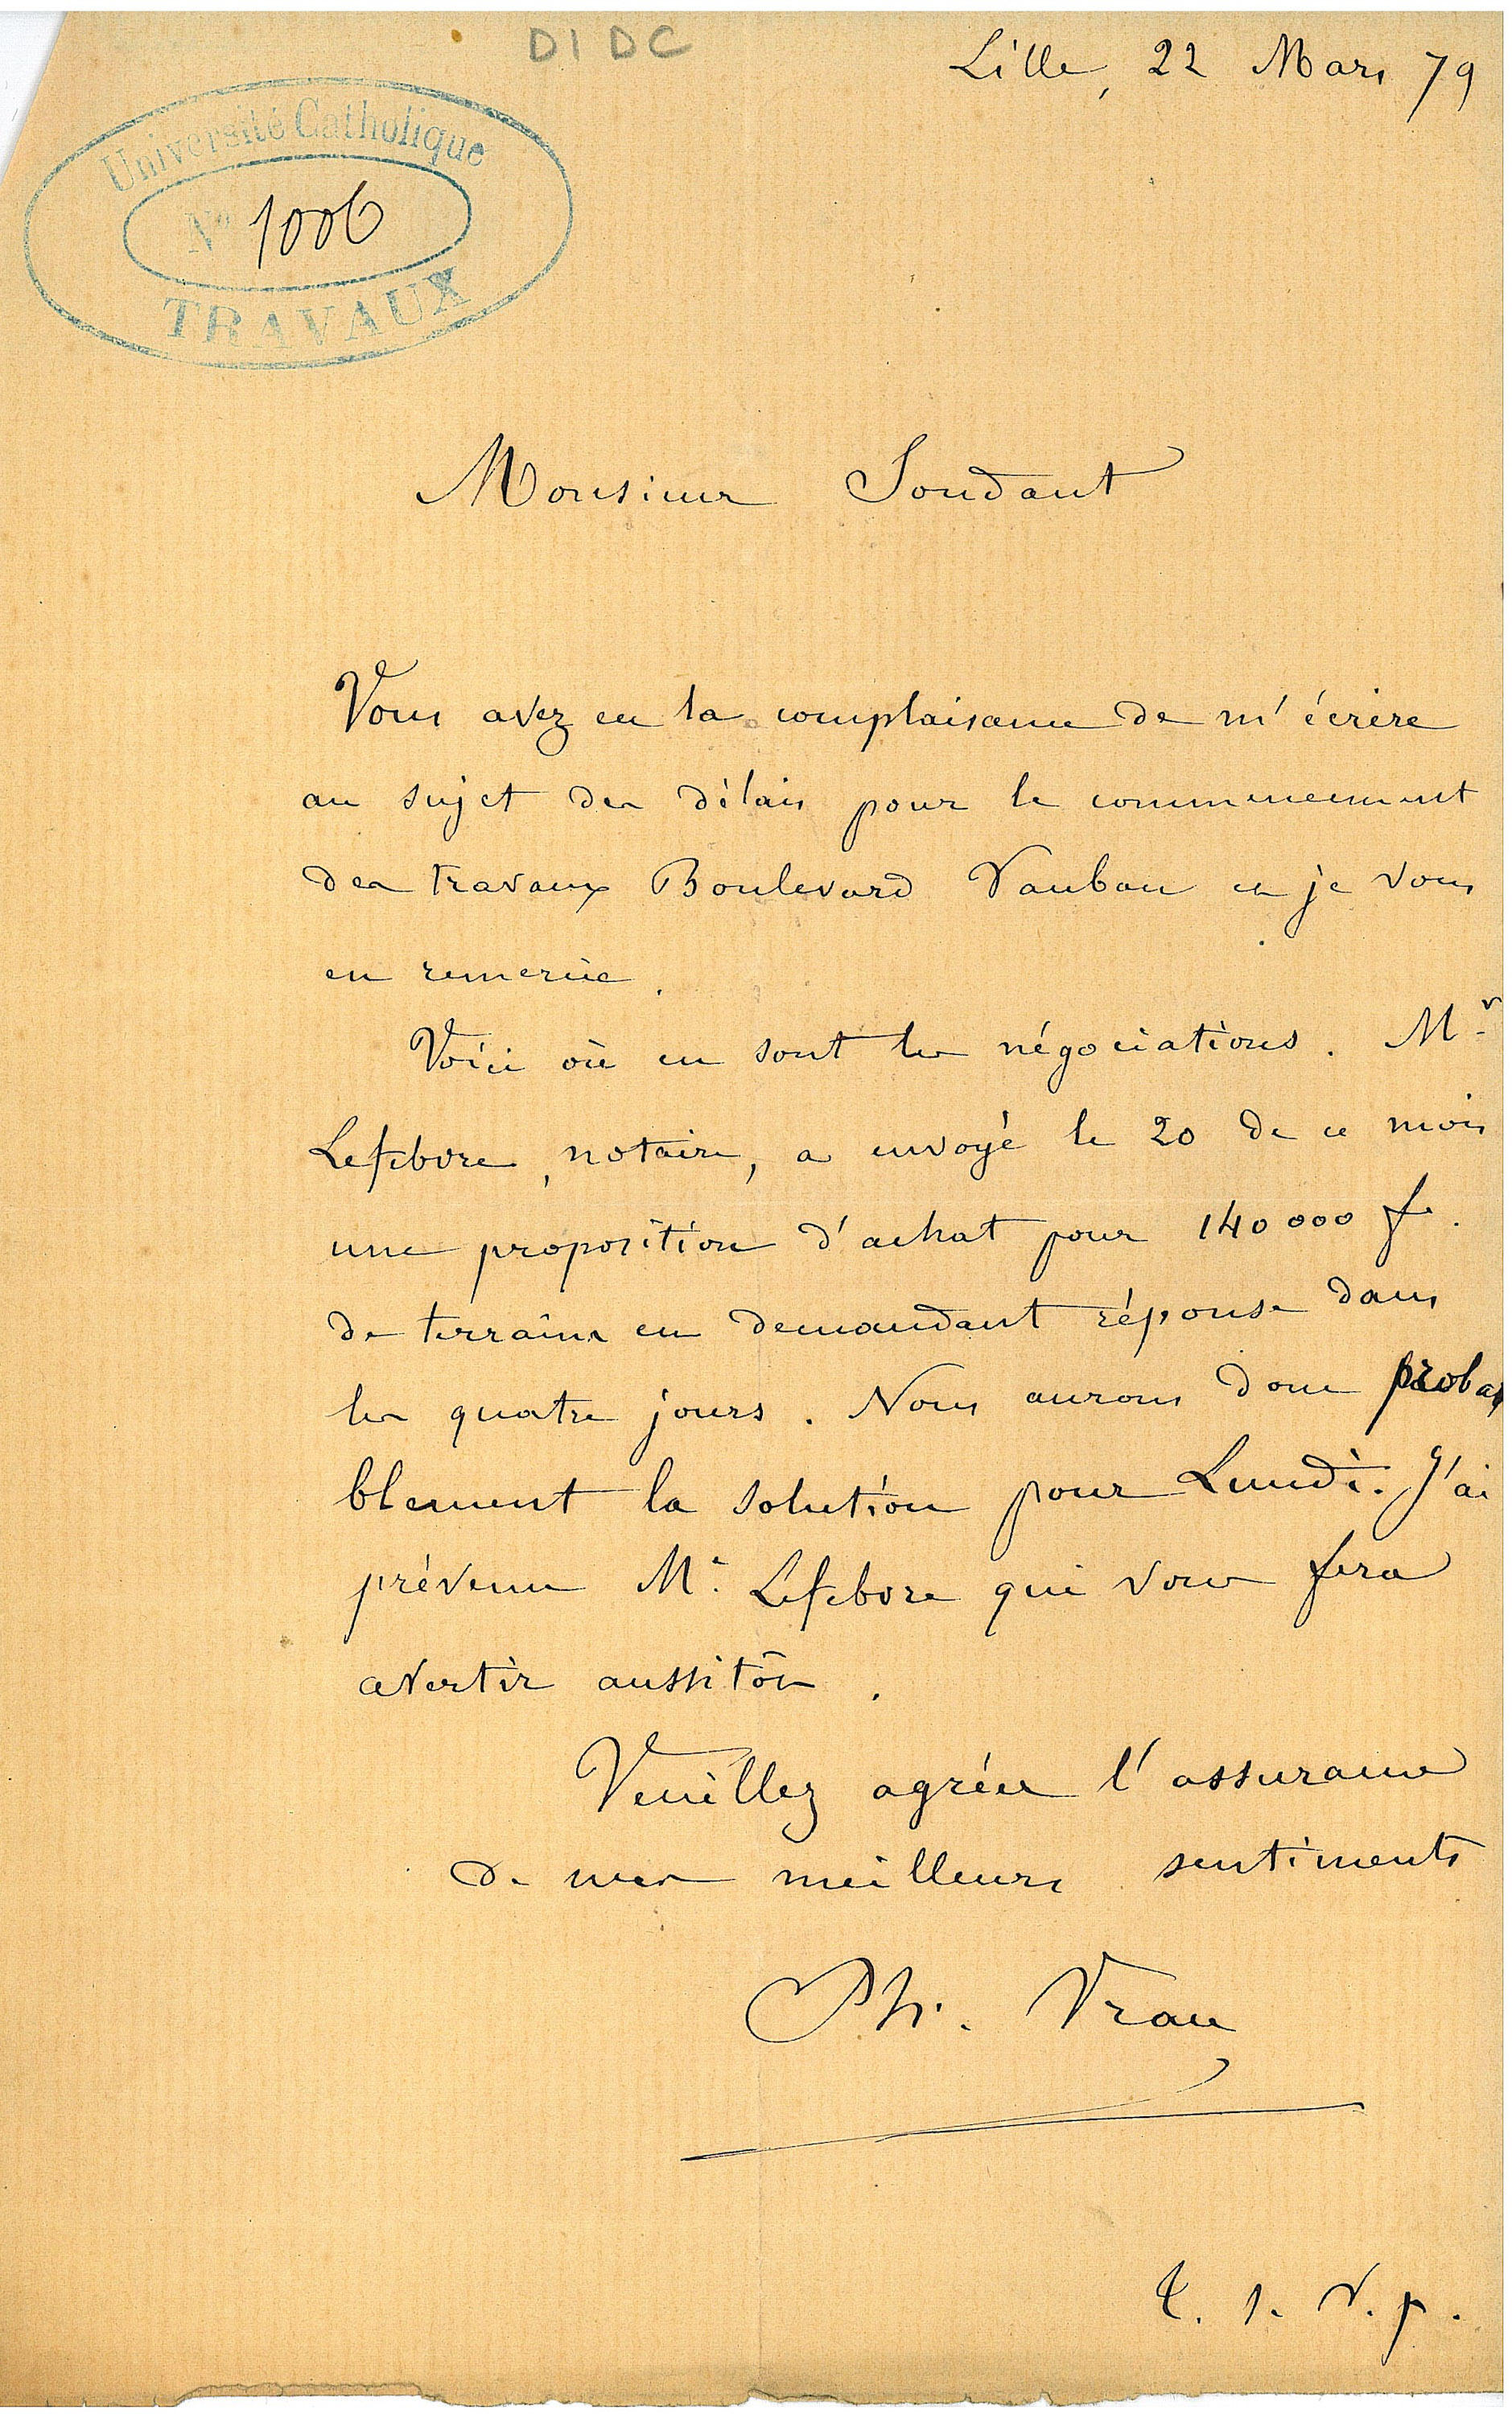 D1 DC
Lille, 22 Mars 79
Université Catholique
N° 1006
TRAVAUX
Monsieur Soudant
Vous avez eu la complaisance de m'écrire
au sujet des délais pour le commencement
des travaux Boulevard Vauban et je vous
en remercie.
Voici où en sont les négociations. Mr
Lefebvre, notaire, a envoyé le 20 de ce mois
une proposition d'achat pour 140 000 fr.
de terrains en demandant réponse dans
les quatre jours. Nous aurons donc proba
blement la solution pour Lundi. J'ai
prévenu Mr. Lefebvre qui vous fera
avertir aussitôt.
Veuillez agréer l'assurance
de mes meilleurs sentiments
Ph. Vrau
T. s. v. p.